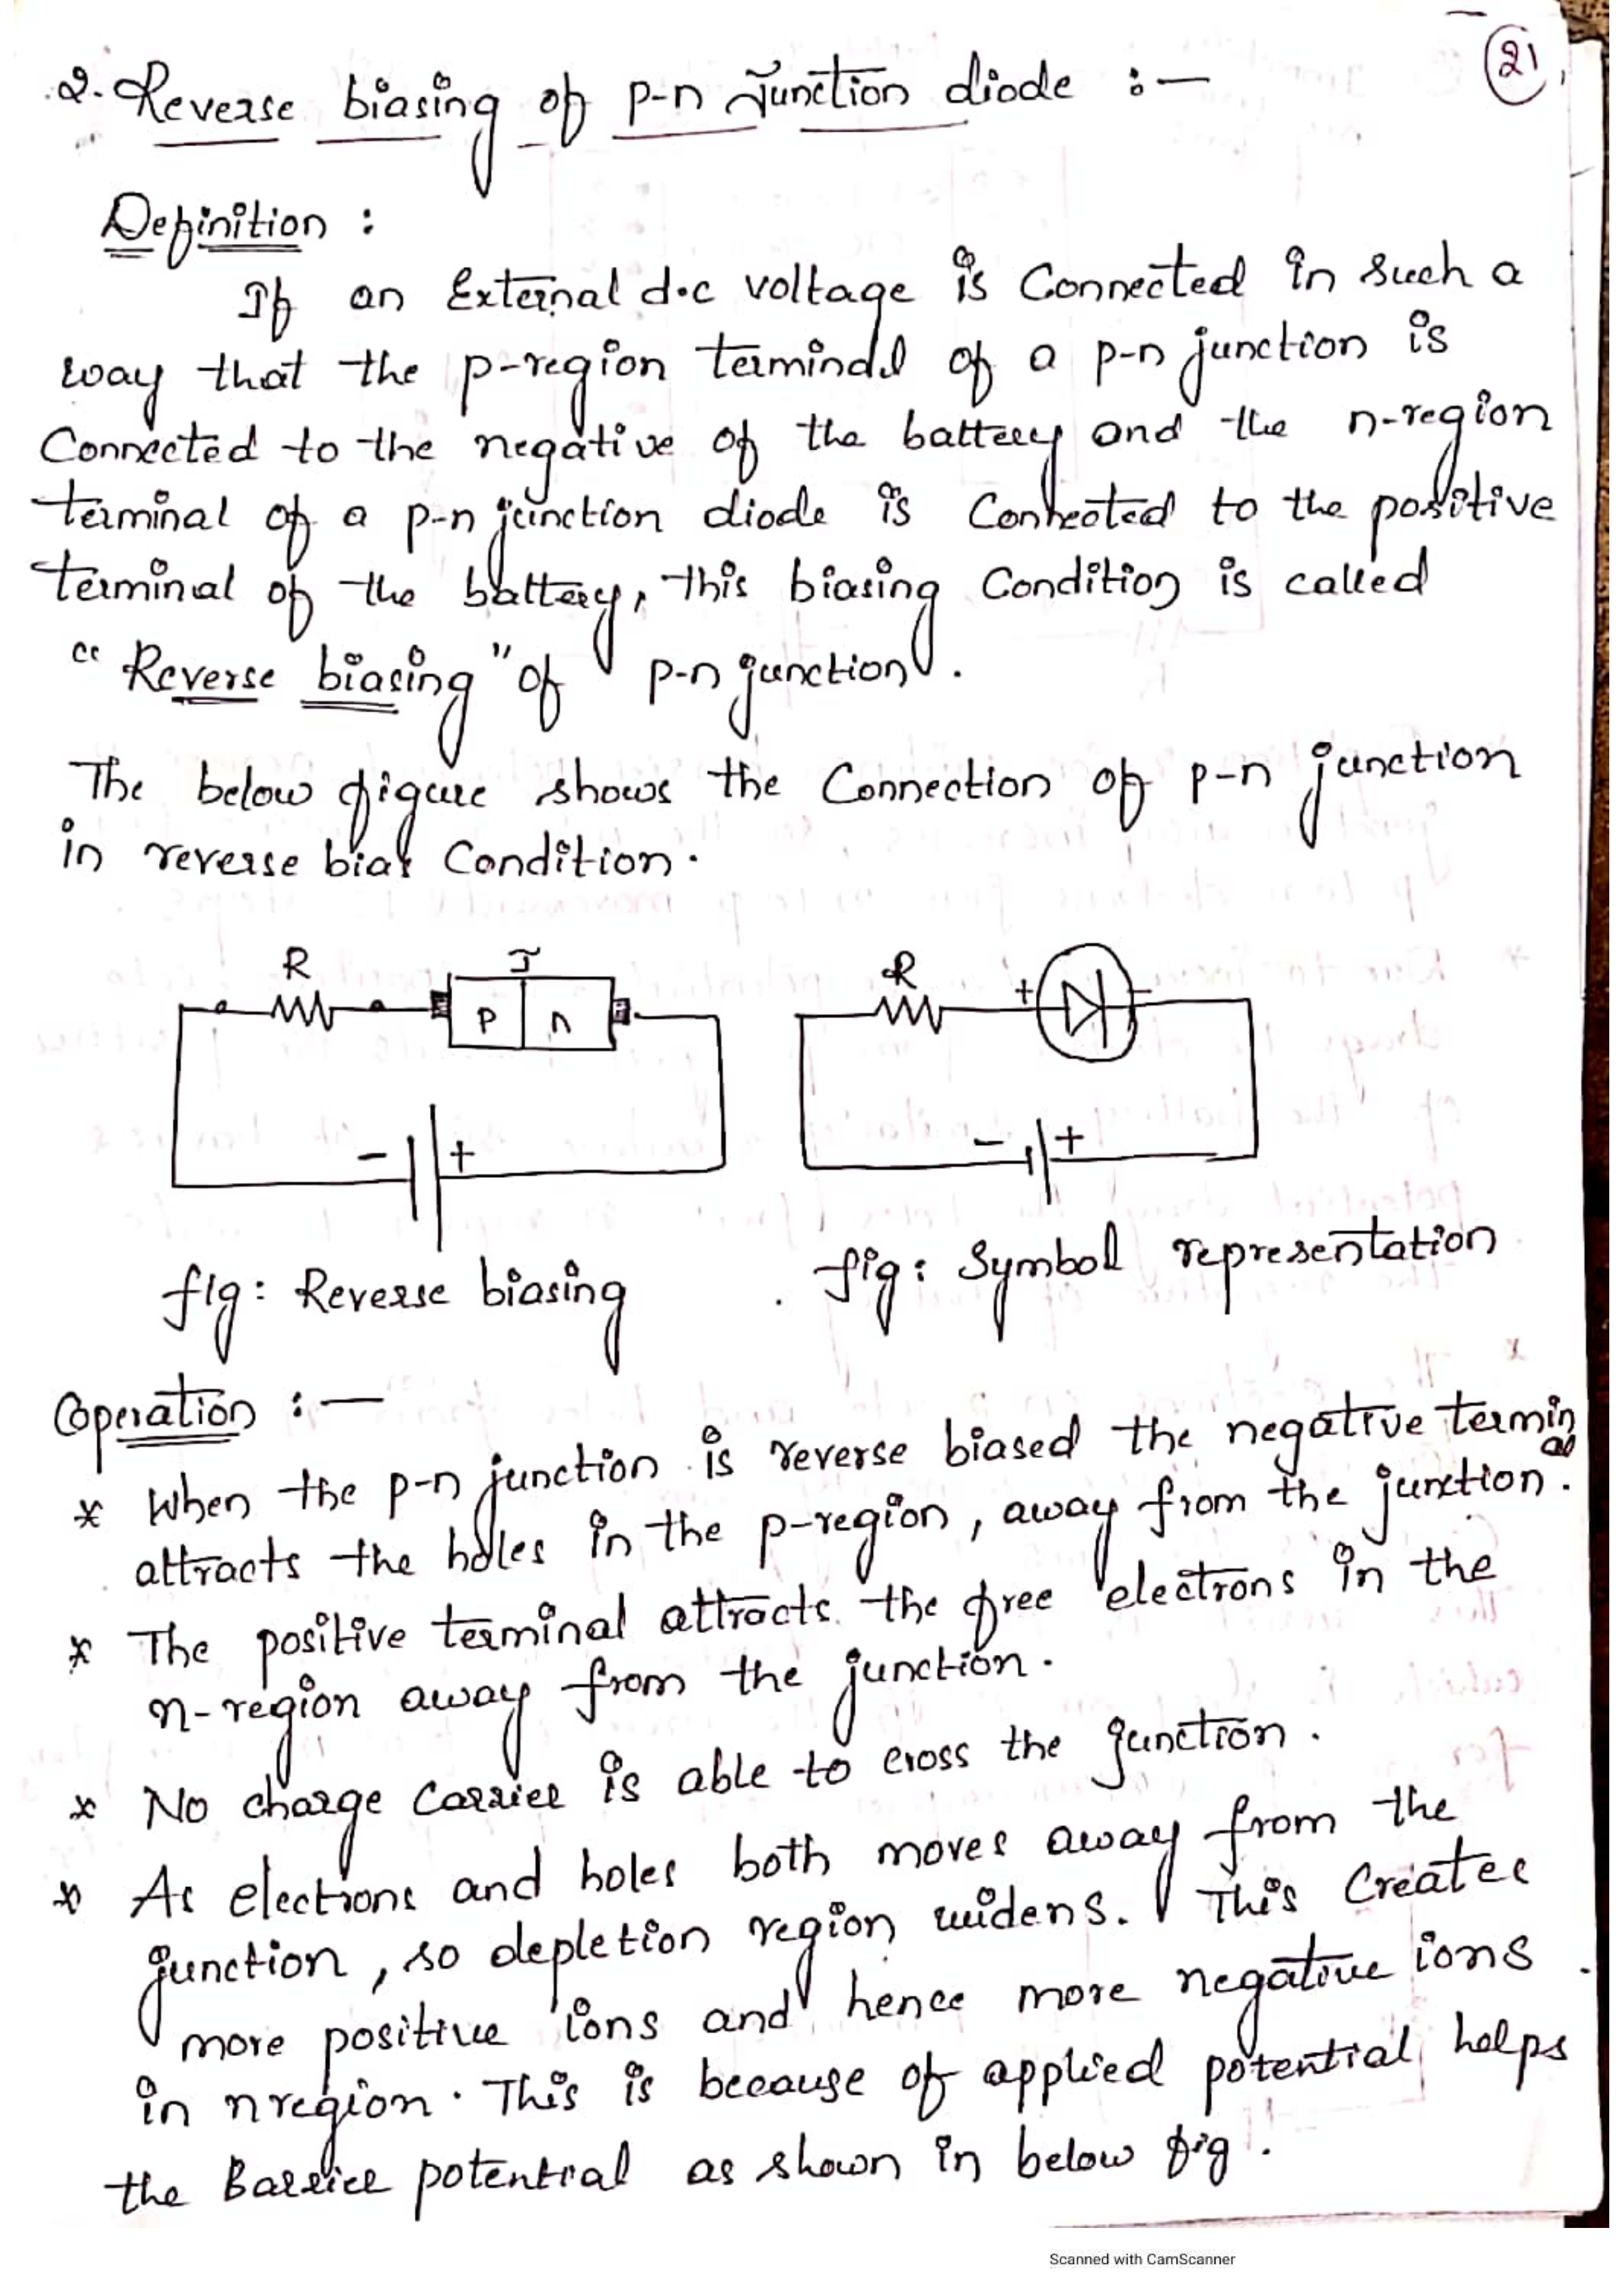 21
2. Reverse biasing of p-n Junction diode :-
Definition :
If an External d.c voltage is Connected in such a
way that the p-region terminal of a p-n junction is
Connected to the negative of the battery and the n-region
terminal of a p-n junction diode is Connected to the positive
terminal of the battery, this biasing Condition is called
"Reverse biasing" of p-n junction.
The below figure shows the Connection of p-n junction
in reverse bias Condition.
R J R
p n + -
- + - +
fig: Reverse biasing fig: Symbol representation
Operation :-
* When the p-n junction is reverse biased the negative terminal
attracts the holes in the p-region, away from the junction.
* The positive terminal attracts the free electrons in the
n-region away from the junction.
* No charge carrier is able to cross the junction.
* As electrons and holes both moves away from the
junction, so depletion region widens. This Creates
more positive ions and hence more negative ions
in n region. This is because of applied potential helps
the Barrier potential as shown in below fig.
Scanned with CamScanner